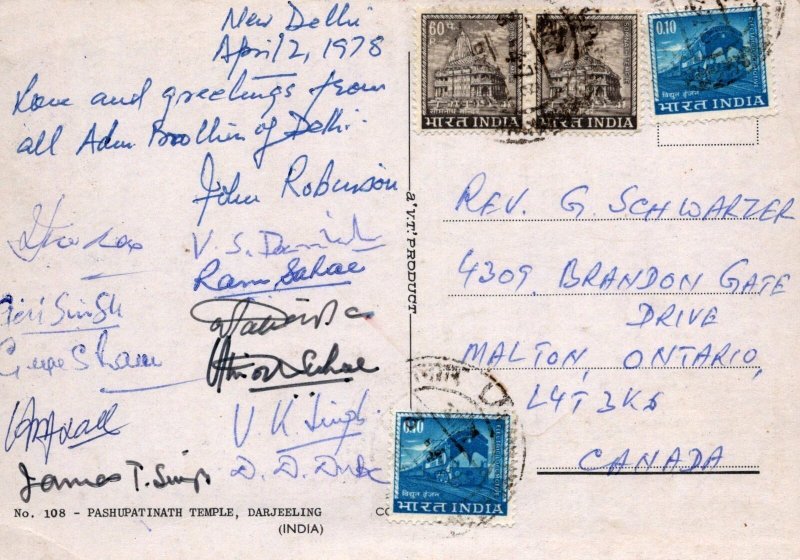 New Delhi
April 2, 1978
Love and greetings from
all Adm Brothers of Delhi.
John Robinson
V. S. Daniel
Ram Sahae
Giri Singh
V K Singh
James T. Singh
D. D. Dube
No. 108 - PASHUPATINATH TEMPLE, DARJEELING
(INDIA)
CO
a 'V.T.' PRODUCT
60 P
भारत INDIA
भारत INDIA
0.10
विद्युत इंजन
भारत INDIA
REV. G. SCHWARZER
4309, BRANDON GATE
DRIVE
MALTON, ONTARIO,
L4T 3K5
CANADA
विद्युत इंजन
भारत INDIA